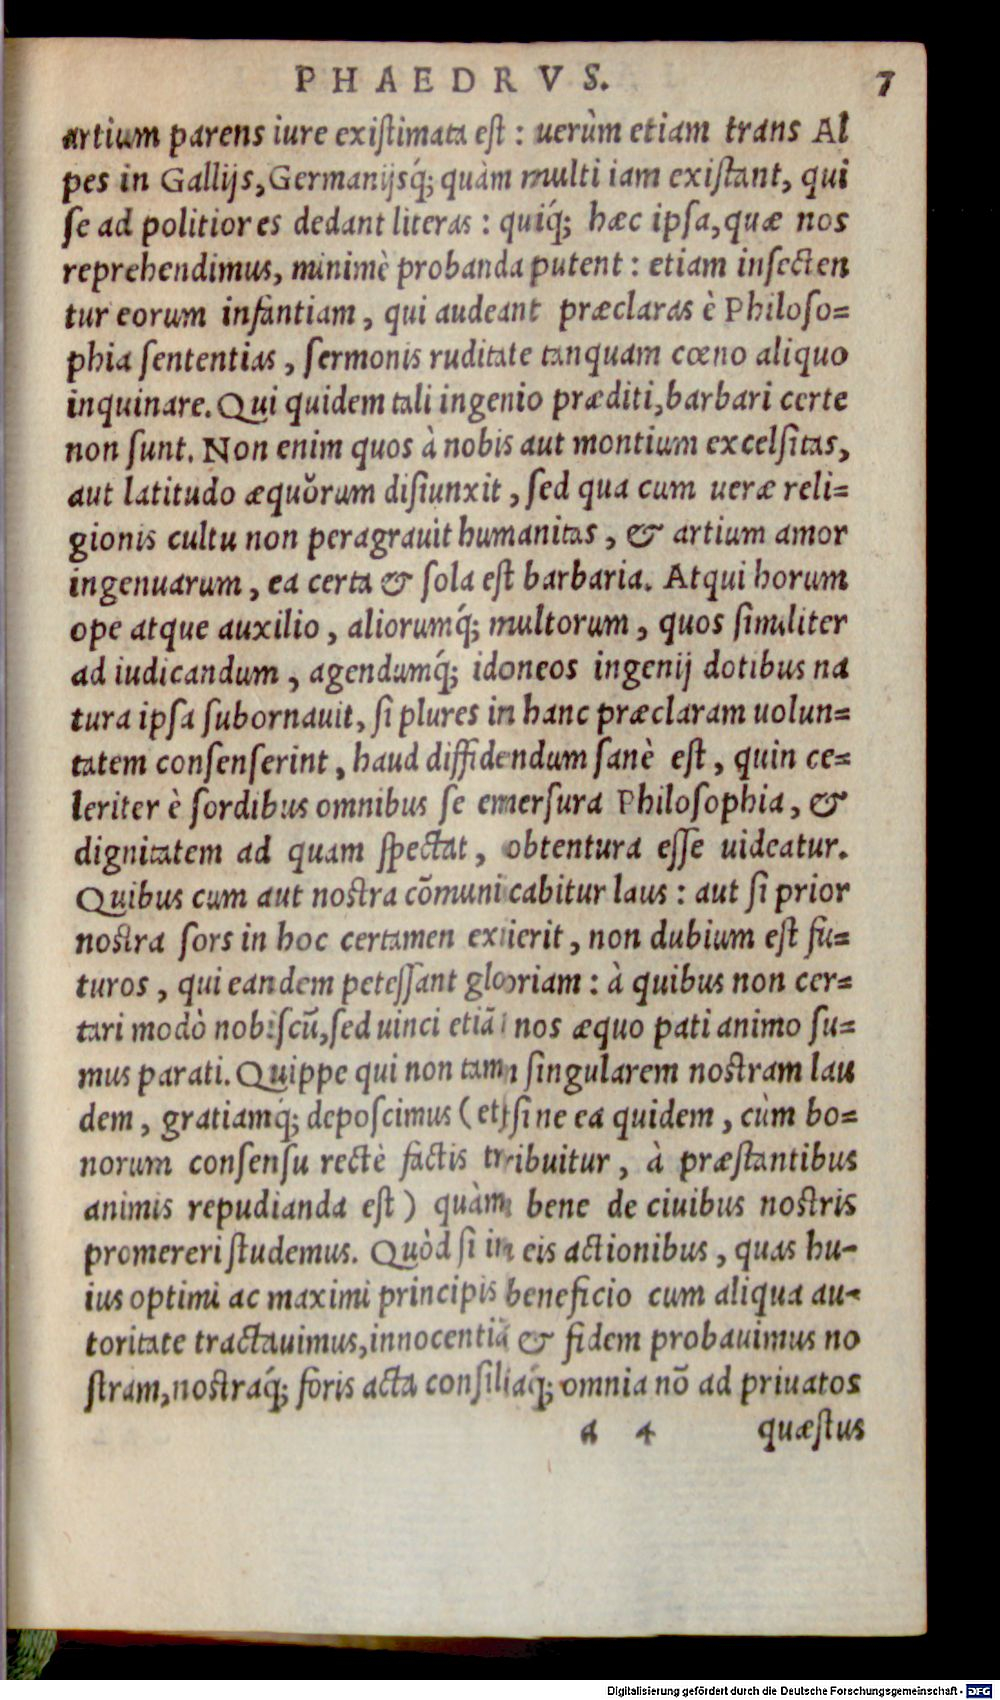 PHAEDRVS. 7
artium parens iure existimata est : uerùm etiam trans Al
pes in Gallijs, Germanijsq́; quàm multi iam existant, qui
se ad politiores dedant literas : quiq́; hæc ipsa, quæ nos
reprehendimus, minimè probanda putent : etiam insecten
tur eorum infantiam, qui audeant præclaras è Philoso=
phia sententias, sermonis ruditate tanquam cœno aliquo
inquinare. Qui quidem tali ingenio præditi, barbari certe
non sunt. Non enim quos à nobis aut montium excelsitas,
aut latitudo æquŏrum disiunxit, sed qua cum ueræ reli=
gionis cultu non peragrauit humanitas, & artium amor
ingenuarum, ea certa & sola est barbaria. Atqui horum
ope atque auxilio, aliorumq́; multorum, quos similiter
ad iudicandum, agendumq́; idoneos ingenij dotibus na
tura ipsa subornauit, si plures in hanc præclaram uolun=
tatem consenserint, haud diffidendum sanè est, quin ce=
leriter è sordibus omnibus se emersura Philosophia, &
dignitatem ad quam spectat, obtentura esse uideatur.
Quibus cum aut nostra cõmunicabitur laus : aut si prior
nostra sors in hoc certamen exierit, non dubium est fu=
turos, qui eandem petessant gloriam : à quibus non cer=
tari modò nobiscũ, sed uinci etiã nos æquo pati animo su=
mus parati. Quippe qui non tam singularem nostram lau
dem, gratiamq́; deposcimus (etsi ne ea quidem, cùm bo=
norum consensu rectè factis tribuitur, à præstantibus
animis repudianda est) quàm bene de ciuibus nostris
promereri studemus. Quòd si in eis actionibus, quas hu-
ius optimi ac maximi principis beneficio cum aliqua au-
toritate tractauimus, innocentiã & fidem probauimus no
stram, nostraq́; foris acta consiliaq́; omnia nõ ad priuatos
a 4 quæstus
Digitalisierung gefördert durch die Deutsche Forschungsgemeinschaft - DFG